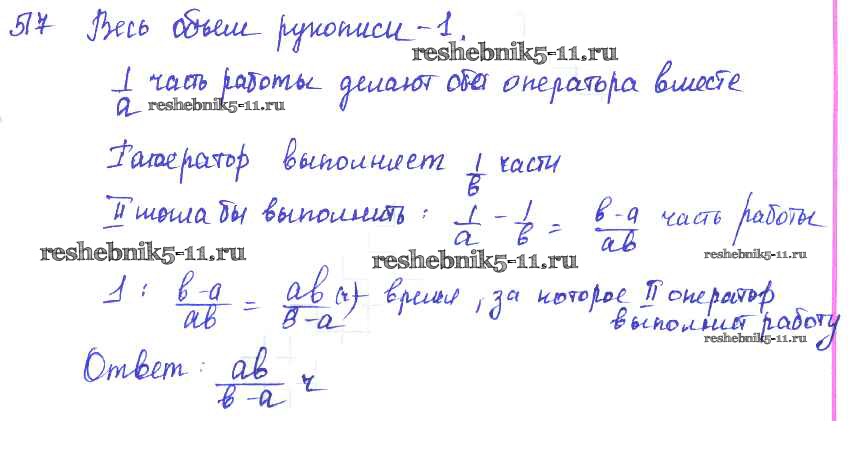 517 Весь объем рукописи - 1.
reshebnik5-11.ru
1/a часть работы делают оба оператора вместе
reshebnik5-11.ru
I оператор выполняет 1/в части
II могла бы выполнить: 1/a - 1/в = в-a/aв часть работы
reshebnik5-11.ru reshebnik5-11.ru reshebnik5-11.ru
1 : в-a/aв = aв/в-a (ч) - время, за которое II оператор
выполнит работу
reshebnik5-11.ru
Ответ: aв/в-a ч